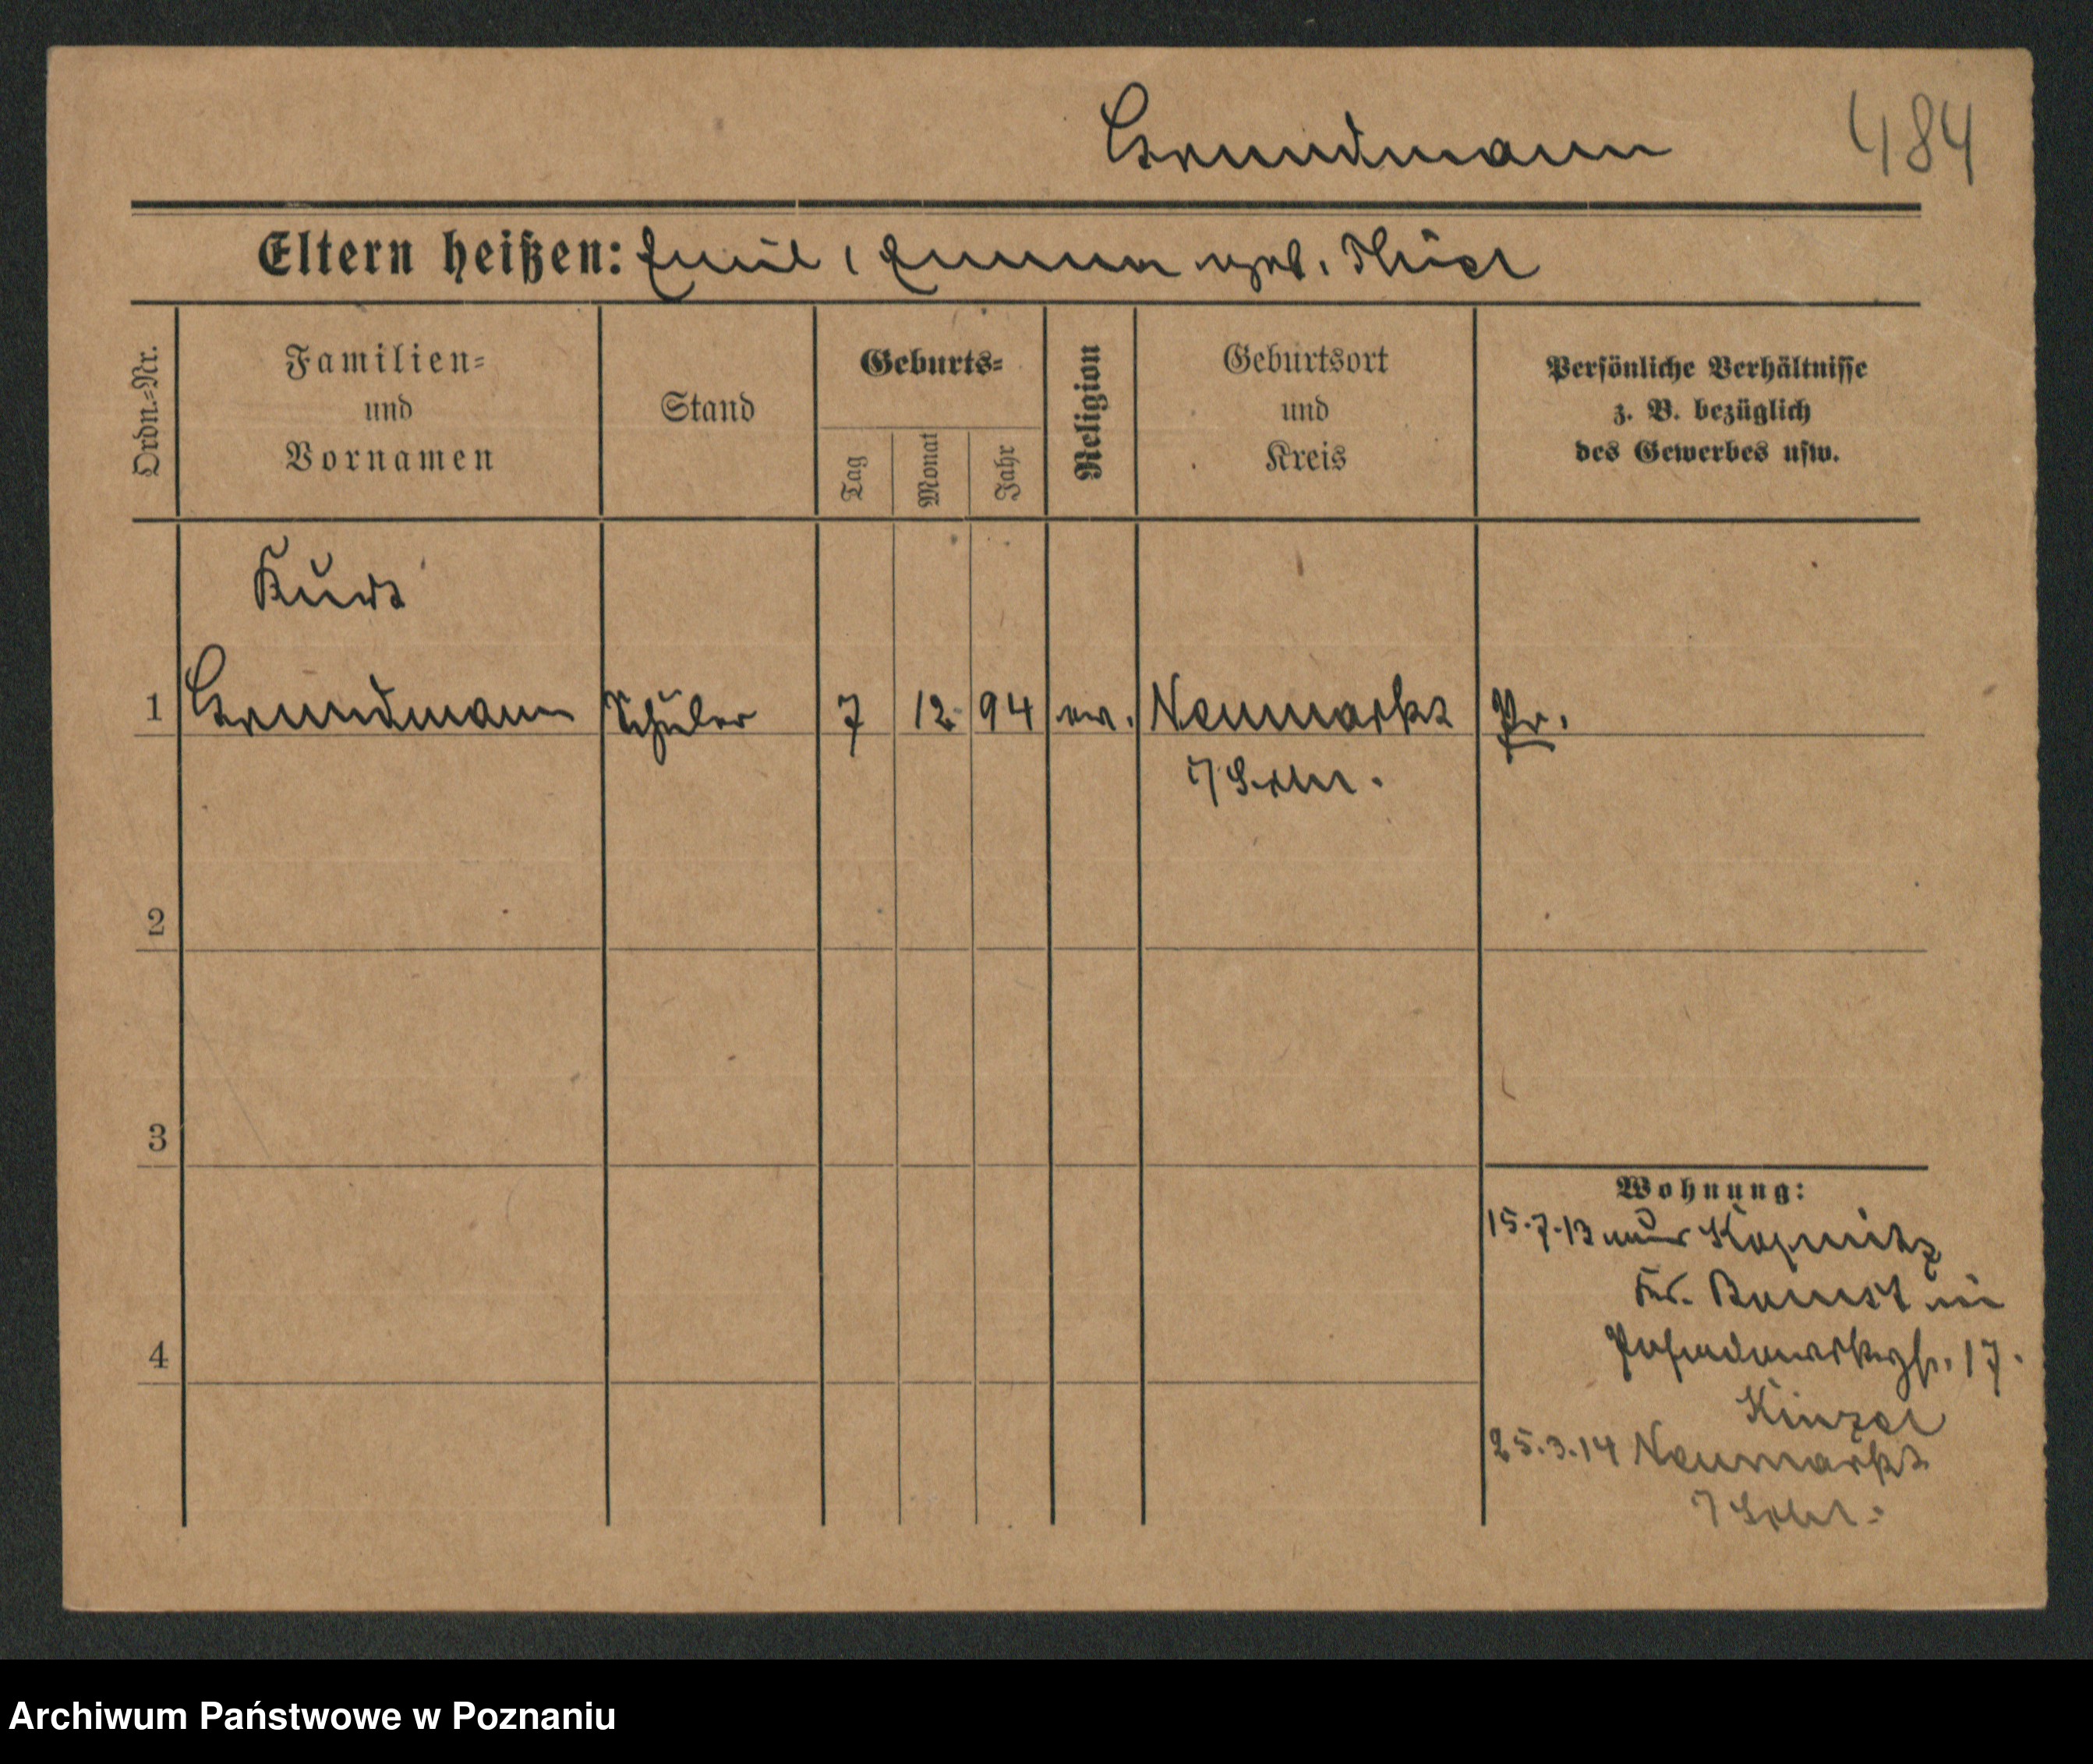 Grundmann 484
Eltern heißen: Emil, Emma geb. Thiel
Ordn.-Nr.
Familien-
und
Vornamen
Stand
Geburts-
Tag
Monat
Jahr
Religion
Geburtsort
und
Kreis
Persönliche Verhältnisse
z. B. bezüglich
des Gewerbes usw.
Kurt
1 Grundmann Schüler 7 12 94 ev. Neumarkt Pr.
i/Schl.
2
3
4
Wohnung:
15.7.13 Kopnitz
Kr. Bomst in
17.
Kinzel
25.3.14 Neumarkt
i/Schl.
Archiwum Państwowe w Poznaniu